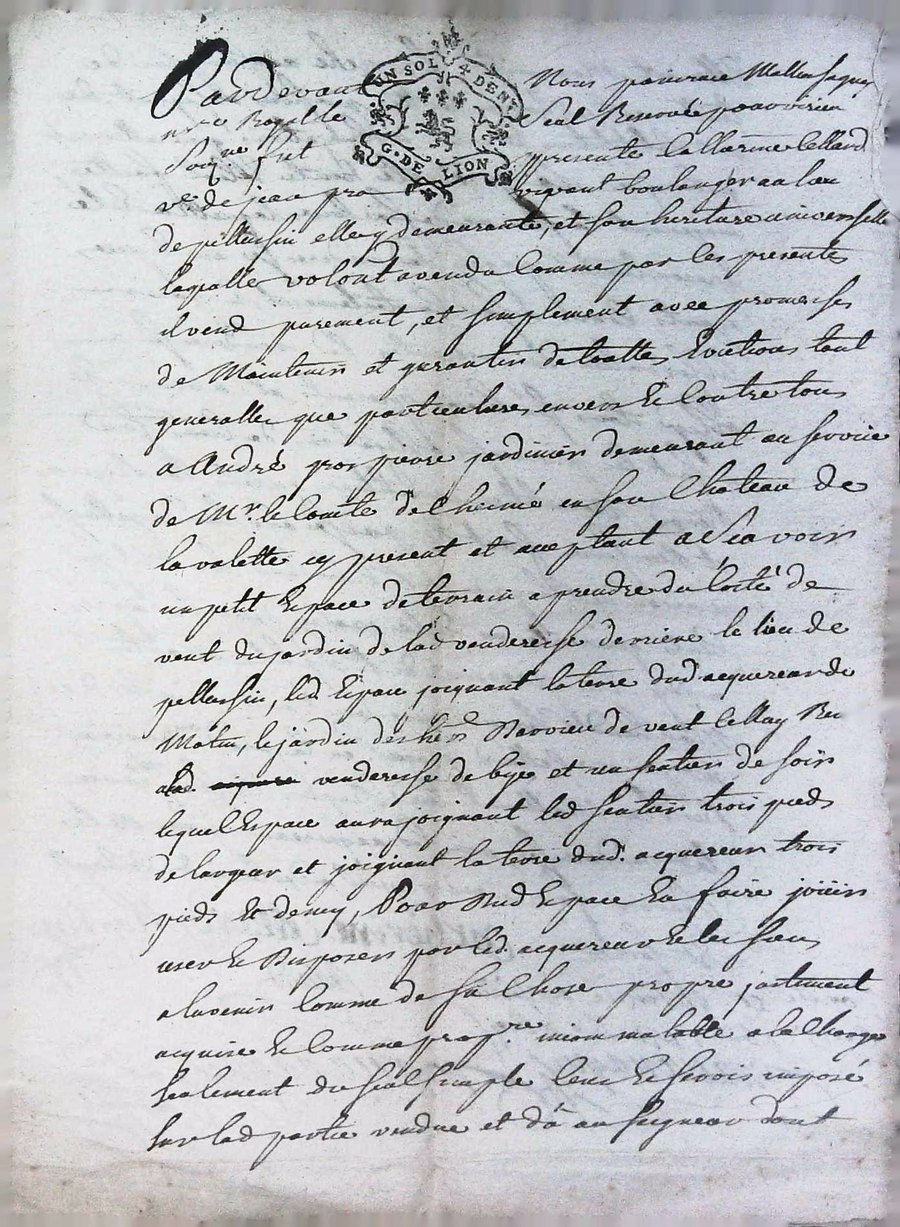 UN SOL 4 DEN.
G. DE LION
Pardevant Nous
Royal Seul Reservé
fut presente Catharine
ve. de jean vivant boulanger au lieu
de pellussin elle y demeurante, et son heritiere universelle
laquelle volont a vendu comme par les presentes
il vend purement, et simplement avec promesses
de Maintenir et garantir de touttes Evictions tant
generalles que particulieres envers Et Contre tous
a André grospierre jardinier demeurant au service
de Mr. le Comte d' en son Chateau de
la valette cy present et acceptant a Sçavoir
un petit Espace de terrain a prendre du Coté de
vent du jardin de lad venderesse derriere le lieu de
pellussin, led. Espace joignant la terre dud acquereur de
Matin, le jardin des hers Barvieu de vent Celluy
alad. venderesse de bize et un sentier de soir
lequel Espace aura joignant led sentier trois pieds
de largeur et joignant la terre dud. acquereur trois
pieds Et demy, Pour dud Espace En faire joüir
user Et Disposer par led. acquereur Et les siens
a lavenir Comme de sa Chose propre justement
acquise Et Comme propre. a la Charge
seulement du seul simple Cens Et servis imposé
sur lad partie vendue et dû au seigneur dont